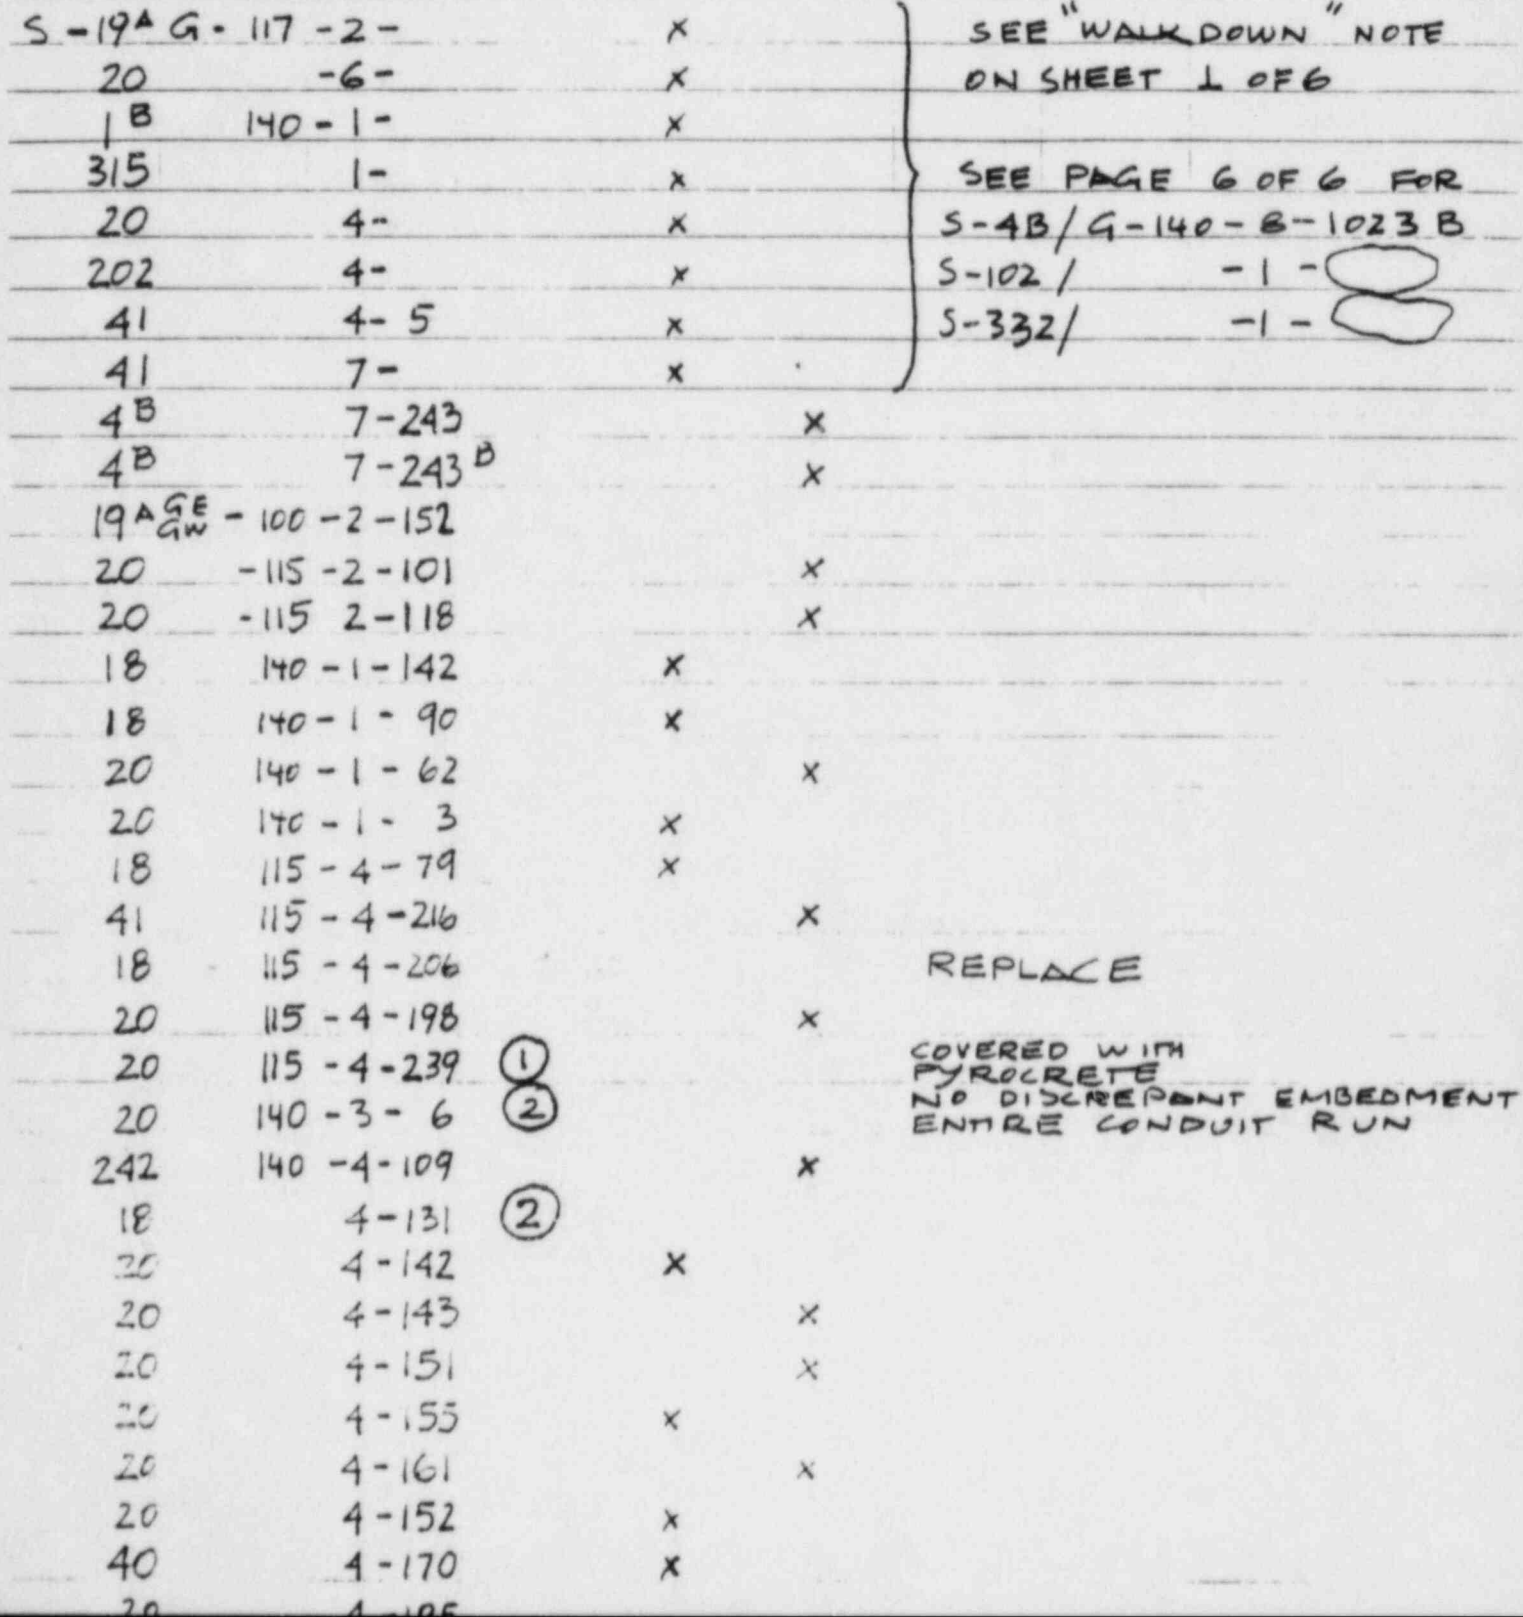 S-19A G- 117 -2- × SEE "WALKDOWN" NOTE
20 -6- × ON SHEET 1 OF 6
1B 140-1- ×
315 1- × SEE PAGE 6 OF 6 FOR
20 4- × S-4B/G-140-8-1023 B
202 4- × S-102/ -1-
41 4-5 × S-332/ -1-
41 7- ×
4B 7-243 ×
4B 7-243B ×
19A GE GW -100-2-152
20 -115-2-101 ×
20 -115 2-118 ×
18 140-1-142 ×
18 140-1-90 ×
20 140-1-62 ×
20 140-1-3 ×
18 115-4-79 ×
41 115-4-216 ×
18 115-4-206 REPLACE
20 115-4-198 ×
20 115-4-239 ① COVERED WITH
PYROCRETE
20 140-3-6 ② NO DISCREPANT EMBEDMENT
ENTIRE CONDUIT RUN
242 140-4-109 ×
18 4-131 ②
20 4-142 ×
20 4-143 ×
20 4-151 ×
20 4-155 ×
20 4-161 ×
20 4-152 ×
40 4-170 ×